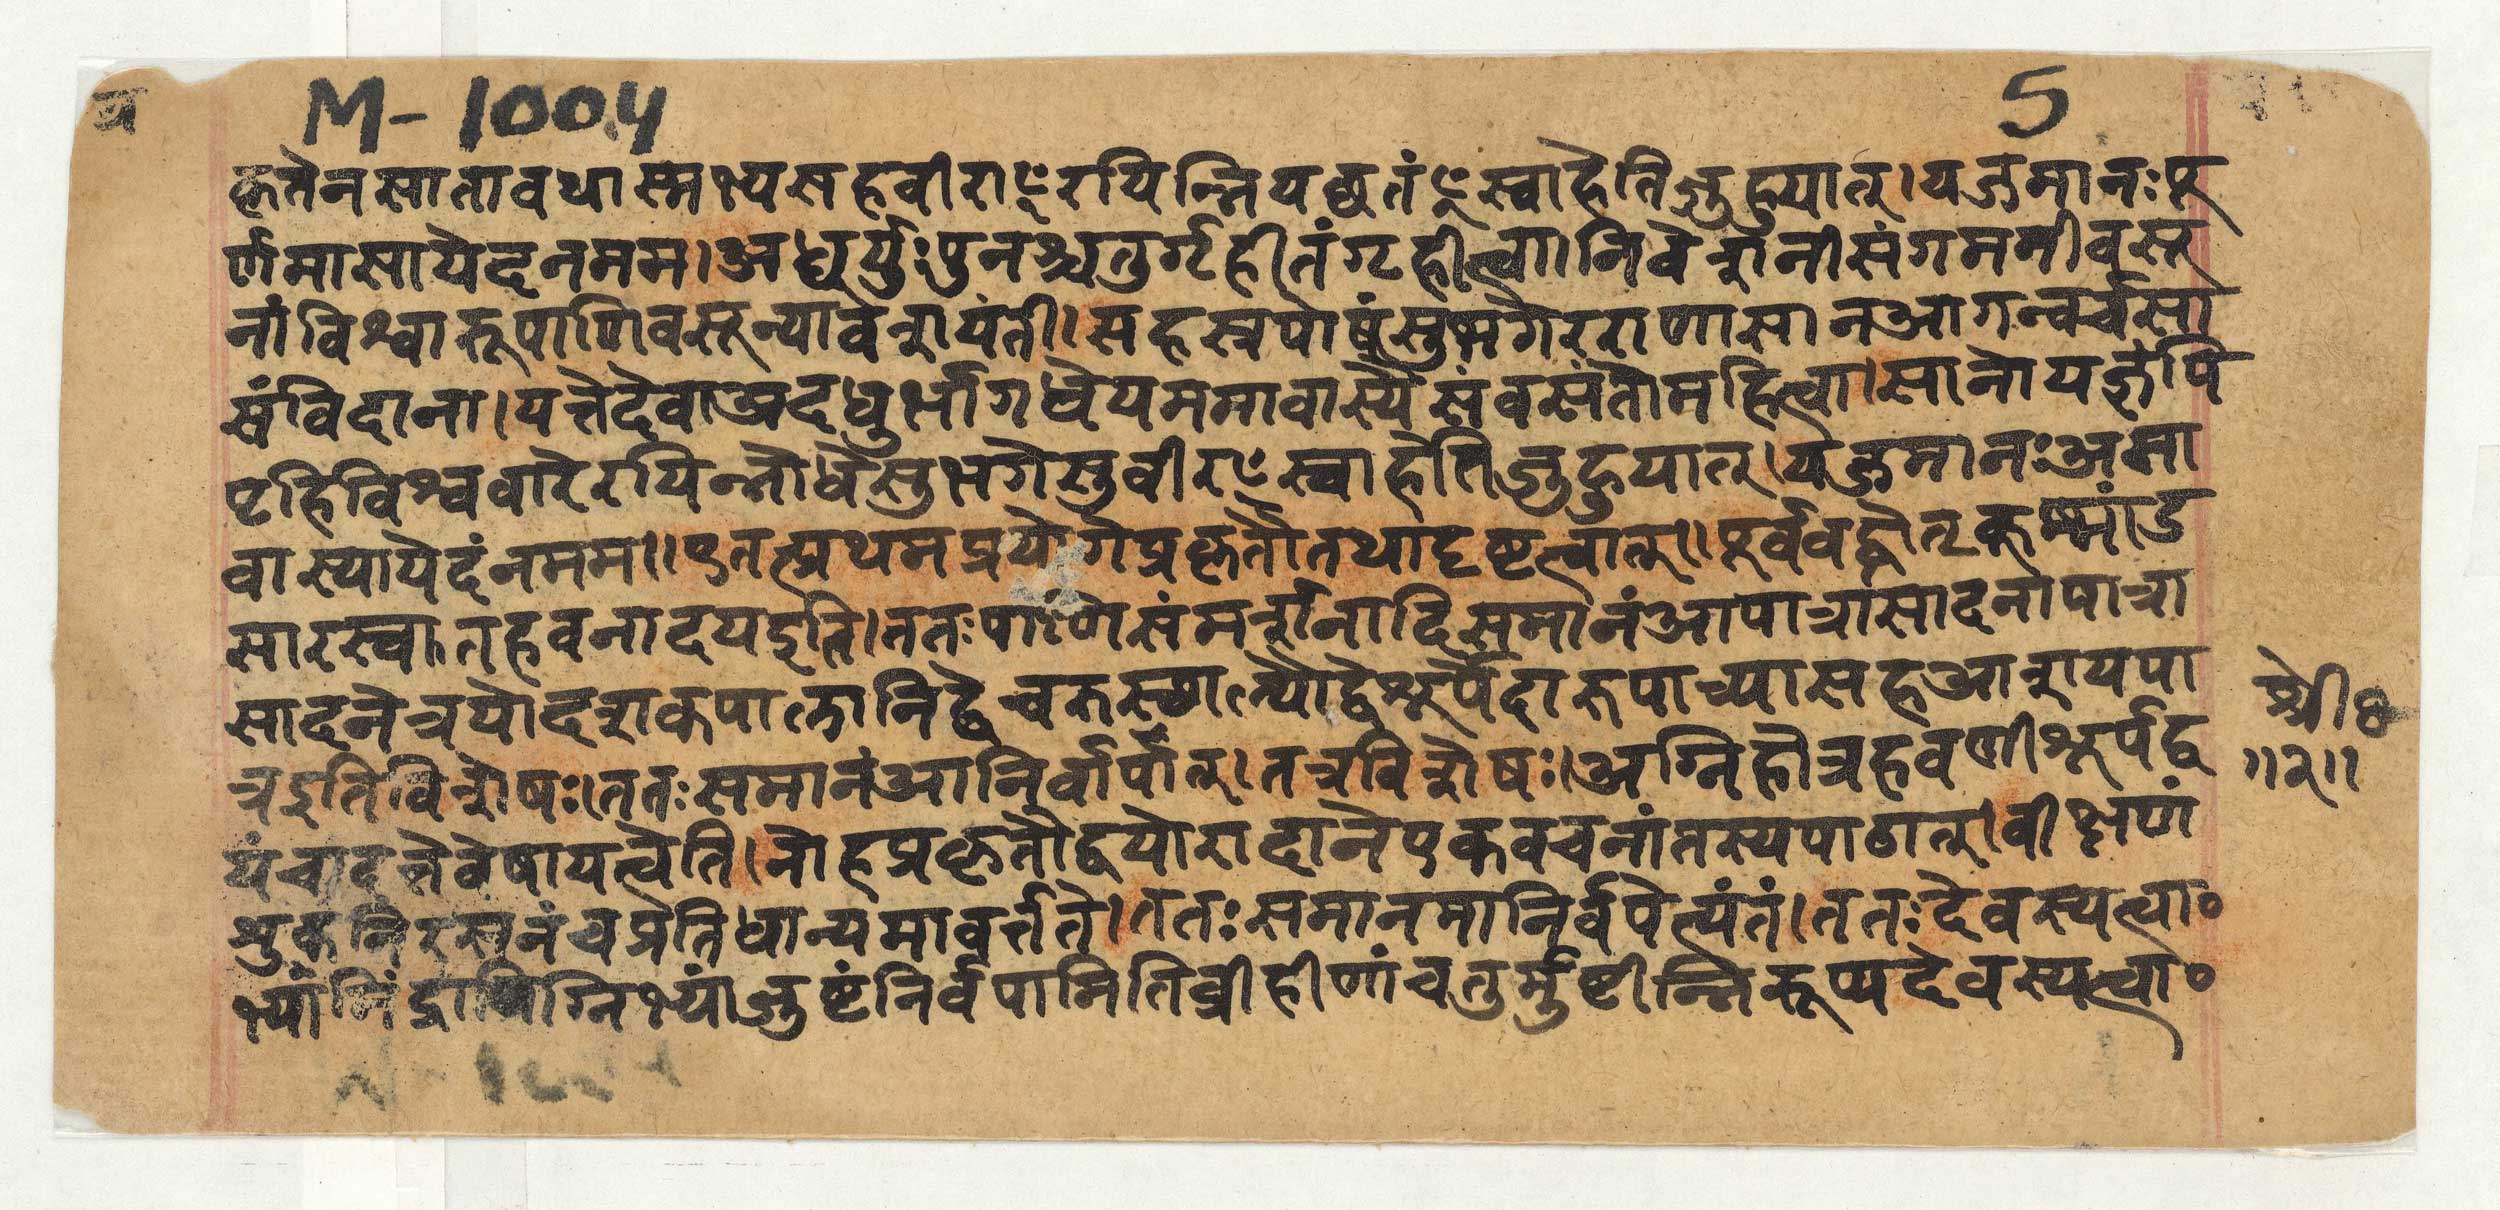 य
M-1004
5
कृतेनसातावथास्मभ्यसहवीराꣳरयिन्नियछतंꣳस्वाहेतिजुहुयात्।यजमानःपू
र्णमासायेदनमम।अध्वर्युःपुनश्चतुर्गृहीतंगृहीत्वा।निवेशनीसंगमनीवसू
नांविश्वारूपाणिवसून्यावेशयंती।सहस्रपोषंसुभगेरराणासानआगन्वर्चसा
संविदाना।यत्तेदेवाअदधुर्भागधेयममावास्येसंवसंतोमहित्वा।सानोयज्ञंपि
पृहिविश्ववारेरयिन्नोधेसुभगेसुवीरꣳस्वाहेतिजुहुयात्।यजमानःअमा
वास्यायेदंनमम॥एतत्प्रथमप्रयोगेप्रकृतौतथादृष्टत्वात्॥पूर्ववद्धोतृकूष्मांड
सारस्वातहवनादयइति।ततःपाणिसंमर्शनादिसमानंआपात्रासादनापात्रा
सादनेत्रयोदशकपालानिद्वेचरुस्थाल्यौद्वेशूर्पेदारुपात्र्यासहआशयपा
त्रइतिविशेषः।ततःसमानंआनिर्वापात्।तत्रविशेषः।अग्निहोत्रहवणीशूर्पद्व
यंचादत्तेवेषायत्वेति।नोहप्रकृतौद्वयोरादानेएकवचनांतस्यपाठात्।वीक्षणं
भ्रुकनिरसनंचप्रतिधान्यमावर्त्तते।ततःसमानमानिर्वपेत्यंतं।ततःदेवस्यत्वा०
भ्यांमिंद्राग्निभ्यांजुष्टंनिर्वपामितिव्रीहीणांचतुर्मुष्टीन्निरूप्यदेवस्यत्वा०
॥२॥